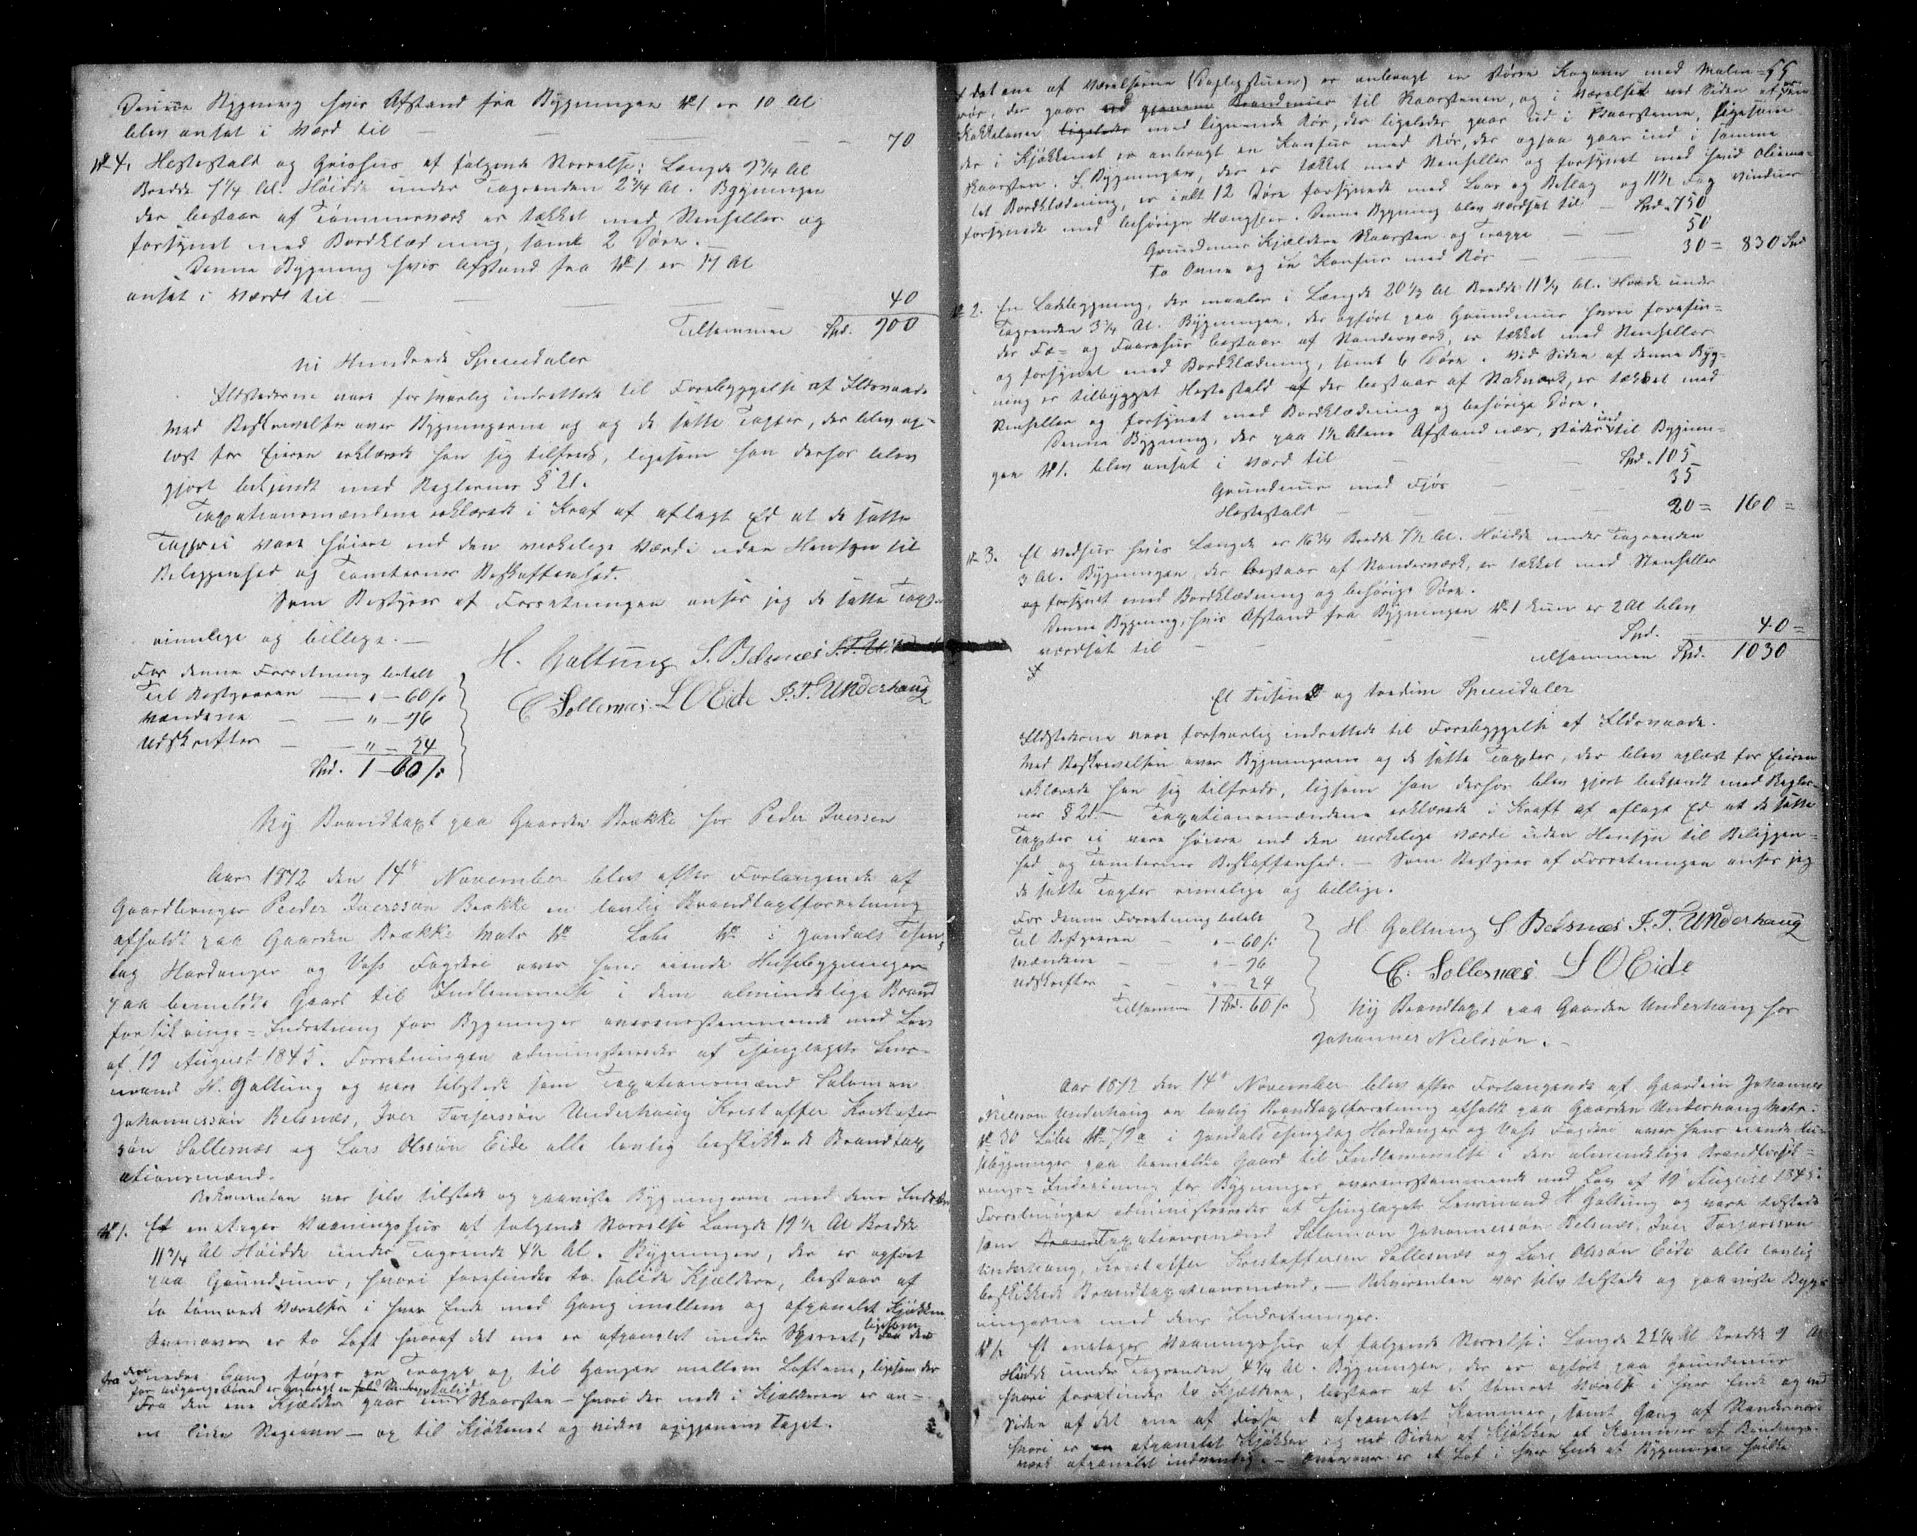 Denne Bygning hvis Afstand fra Bygningen No 1 er 10 Al
blev ansat i Værd til — — — — 70
No 4, Hestestald og Grishus af følgende Størrelse: Længde 9 3/4 Al
Bredde 5 1/4 Al. Høidde under Tagrenden 2 3/4 Al. Bygningen
der bestaar af Tømmerværk er tækket med Stenheller og
forsynet med Bordklædning, samt 2 Døre. —
Denne Bygning hvis Afstand fra No 1 er 11 Al
ansat i Værdi til — — — 40
Tilsammen Spd. 900
Ni Hundrede Speciedaler
Ildstederne vare forsvarlig indrettede til Forebyggelse af Ildsvaade
Med Beskrivelsen over Bygningerne og og de satte Taxter, der blev op-
læst for Eieren erklærede han sig tilfreds, ligesom han derhos blev
gjort bekjendt med Reglernes § 21.
Taxationsmændene erklærede i Kraf af aflagt Ed at de satte
Taxter ei vare høiere end den virkelige Værdi uden Hensyn til
Beliggenhed og Tomternes Beskaffenhed.
Som Bestyrer af Forretningen anser jeg de satte Taxter
rimelige og billige. —
H. Galtung S. Belsnæs
For denne Forretning betalt
Til Bestyreren — „ — 60 ß
Mændene — — „ — 96
Udskrifter — — „ — 24
Spd. 1 — 60 ß
C Sollesnæs LOEide I.T. Underhaug
Ny Brandtaxt paa Gaarden Brække for Peder Iversen
Aar 1872 den 14de November blev efter Forlangende af
Gaardbruger Peder Iverssøn Brække en lovlig Brandtaxtforretning
afholdt paa Gaarden Brække Matr No Løbe No i Jondals Thin-
lag Hardanger og Vos Fogderi over hans eiende Husebygninger
paa bemeldte Gaard til Indlemmelse i den almindelige Brand
forsikrings-Indretning for Bygninger overensstemmende med Lov
af 19 August 1845. Forretningen administreredes af Thinglagets Lens-
mand H. Galtung og vare tilstede som Taxationsmænd Salomon
Johannessøn Belsnæs, Iver Torjerssøn Underhaug Kristoffer Kristofer
søn Sollesnæs og Lars Olssøn Eide alle lovlig beskikkede Brandtax
ationsmænd.
Rekvirenten var selv tilstede og paaviste Bygningerne med dens Indretn
No 1. Et enetages Vaaningshus af følgende Størrelse Længde 19 1/2 Al Bredde
11 3/4 Al Høidde under Tagrende 4 1/2 Al. Bygningen, der er opført
paa Grundmur, hvori forefindes to solide Kjældere, bestaar af
to tømrede Værelser i hver Ende med Gang imellem og afpanelet Kjøkken
Ovenover er to Loft hvoraf det ene er afpanelet under Sperret,
ligesom
fra den nedre Gang fører en Trappe op til Gangen mellem Loftene, ligesom der
for Udgangsdøren er anbragt en
Fra den ene Kjælder gaar en solid Skorsten — hvori der nede i Kjælderen er an-
et lidet — op til Kjøkenet og videre op igjennem Taget.
55
I det ene af Værelserne (Dagligstuen) er anbragt en større Kogeovn med Malm-
rør, der gaar ved gjennem Brandmur til Skorstenen, og i Værelset ved Siden af
Kakkelovn ligeledes med lignende Rør, der ligeledes gaar ud i Skorstenen, ligesom
der i Kjøkkenet er anbragt en Komfur med Rør, der ogsaa gaar ind i samme
Skorsten. I Bygningen, der er tækket med Stenheller og forsynet med hvid oliema-
let Bordklædning, er ialt 12 Døre forsynede med Laas og Beslag og 11 1/2 Fag Vinduer
forsynede med behørige Hængsler. Denne Bygning blev værdsat til — Spd. 750
Grundmur Kjældere Skorsten og Trappe — — 50
To Ovne og en Komfur med Rør — — 30 = 830 Spd
No 2. En Ladebygning, der maaler i Længde 20 1/3 Al Bredde 11 3/4 Al. Høide under
Tagrenden 3 1/4 Al. Bygningen, der opført paa Grundmur hvori forefin-
des Fæ- og Faarehus bestaar af Standerværk, er tækket med Stenheller
og forsynet med Bordklædning, samt 6 Døre. Ved Siden af denne Byg-
ning er tilbygget Hestestald af der bestaar af Stavværk, er tækket med
Stenheller og forsynet med Bordklædning og behørige Døre.
Denne Bygning, der paa 1 1/2 Alens Afstand nær, støder ind til Bygnin-
gen No 1. blev ansat i Værd til — — Spd. 105
Grundmur med Fjøs — — 35
Hestestald — — — 20 = 160 =
No 3. Et Vedhus hvis Længde er 16 3/4 Bredde 7 1/2 Al. Høidde under Tagrenden
3 Al. Bygningen, der bestaar af Standerværk, er tækket med Stenheller
og forsynet med Bordklædning og behørige Døre.
Denne Bygning, hvis Afstand fra Bygningen No 1 kun er 2 Al blev
værdsat til — — Spd. 40 =
Tilsammen Spd. 1030
Et Tusinde og tredive Speciedaler
Ildstederne vare forsvarlig indrettede til Forebyggelse af Ildsvaade.
Med Beskrivelsen over Bygningerne og de satte Taxter, der blev oplæst for Eieren
erklærede han sig tilfreds, ligesom han derhos blev gjort bekjendt med Regler-
nes § 21. — Taxationsmændene erklærede i Kraft af aflagt Ed at de satte
Taxter ei vare høiere end den virkelige Værdi uden Hensyn til Beliggen-
hed og Tomternes Beskaffenhed. — Som Bestyrer af Forretningen anser jeg
de satte Taxter rimelige og billige.
For denne Forretning betalt
Til Bestyreren — „ — 60 ß
Mændene — — „ — 96
Udskrifter — — „ — 24
Tilsammen 1 Spd. 60 ß
H Galtung S Belsnæs I.T. Underhaug
C. Sollesnæs L O Eide
Ny Brandtaxt paa Gaarden Underhaug for
Johannes Nielssøn. —
Aar 1872 den 14de November blev efter Forlangende af Gaardeier Johannes
Nielssøn Underhaug en lovlig Brandtaxtforretning afholdt paa Gaarden Underhaug Matr:
No 30 Løbe No 79a i Jondals Thinglag Hardanger og Vos Fogderi over hans eiende Hu-
sebygninger paa bemeldte Gaard til Indlemmelse i den almindelige Brandforsik-
rings-Indretning for Bygninger overensstemmende med Lov af 19 August 1845.
Forretningen administreredes af Thinglagets Lensmand H Galtung og vare tilstede
som Taxationsmænd Salomon Johannessøn Belsnæs, Iver Torjerssøn
Underhaug, Kristoffer Kristoffersøn Sollesnæs og Lars Olssøn Eide alle lovlig
beskikkede Brandtaxationsmænd. — Rekvirenten var selv tilstede og paaviste Byg-
ningerne med dens Indretninger.
No 1. Et enetages Vaaningshus af følgende Størrelse: Længde 22 1/4 Al Bredde 9 Al
Høidde under Tagrenden 4 1/4 Al. Bygningen, der er opført paa Grundmur
hvori forefindes to Kjældere, bestaar af et tømret Værelse i hver Ende og ved
Siden af det ene af disse et afpanelet Kammer, samt Gang af Standerværk
hvori er en afpanelet Kjøkken og ved Siden af Kjøkken et Kammer af Bindings-
værk afpanelet indvendig. — Ovenover er et Loft i hver Ende af Bygningen hvilke